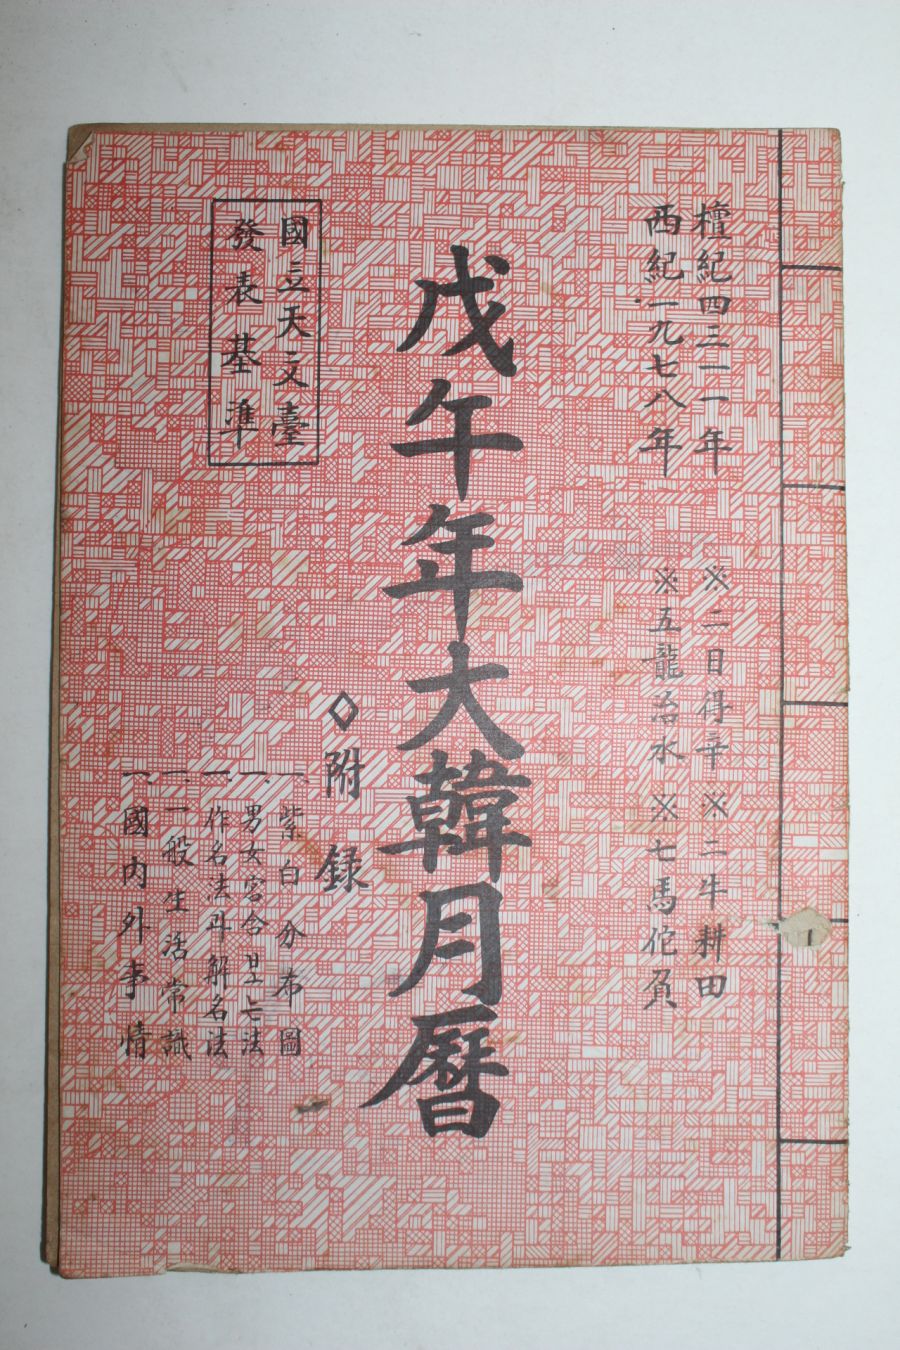 檀紀四三一一年 ※二日得辛 ※二牛耕田
西紀一九七八年 ※五龍治水 ※七馬佗負
戊午年大韓月曆
國立天文臺
發表基準
◇附錄
一. 紫白分布圖
一. 男女宮合보는法
一. 作名法과解名法
一. 一般生活常識
一. 國內外事情
1